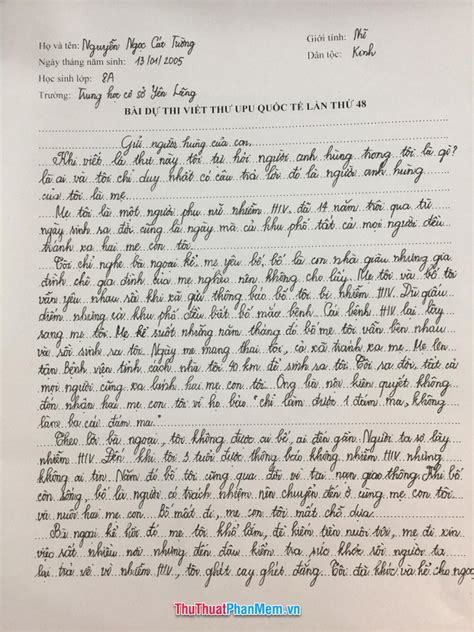 Họ và tên: Nguyễn Ngọc Cát Tường Giới tính: Nữ
Ngày tháng năm sinh: 13/01/2005 Dân tộc: Kinh
Học sinh lớp: 8A
Trường: Trung học cơ sở Yên Lãng
BÀI DỰ THI VIẾT THƯ UPU QUỐC TẾ LẦN THỨ 48
Gửi người hùng của con,
Khi viết lá thư này tôi tự hỏi người anh hùng trong tôi là gì?
là ai và tôi chỉ duy nhất có câu trả lời đó là người anh hùng
của tôi là mẹ.
Mẹ tôi là một người phụ nữ nhiễm HIV. Đã 14 năm trôi qua từ
ngày sinh ra đời cũng là ngày mà cả khu phố tất cả mọi người đều
tránh xa hai mẹ con tôi.
Tôi chỉ nghe bà ngoại kể mẹ yêu bố, bố là con nhà giàu nhưng gia
đình chê gia đình của mẹ nghèo nên không cho lấy. Mẹ tôi và bố tôi
vẫn yêu nhau sau khi xã gửi thông báo bố tôi bị nhiễm HIV. Dù giấu
diếm nhưng cả khu phố đều biết bố mắc bệnh. Căn bệnh HIV lại lây
sang mẹ tôi. Mẹ kể suốt những năm tháng đó bố mẹ tôi vẫn bên nhau
và rồi sinh ra tôi. Ngày mẹ mang thai tôi, cả xã tránh xa mẹ. Mẹ lên
tận Bệnh viện tỉnh cách nhà tôi 40 km để sinh ra tôi. Tôi ra đời, tất cả
mọi người cũng xa lánh hai mẹ con tôi. Ông bà nội kiên quyết không
đón nhận hai mẹ con tôi vì họ bảo "chỉ làm được 1 đám ma, không
làm ba cái đám ma."
Theo lời bà ngoại, tôi không được ai bế, ai đến gần. Người ta sợ lây
nhiễm HIV. Đến khi tôi 3 tuổi được thông báo không nhiễm HIV nhưng
không ai tin. Năm đó bố tôi cũng qua đời vì tai nạn giao thông. Khi bố
còn sống, bố là người có trách nhiệm nên chuyển đến ở cùng mẹ con tôi
và nuôi hai mẹ con. Bố mất đi, mẹ con tôi mất chỗ dựa.
Bà ngoại kể hồi đó mẹ tôi khổ lắm, để kiếm tiền nuôi tôi, mẹ đi xin
việc rất nhiều nơi nhưng đến đâu kiểm tra sức khỏe rồi người ta
lại trả về vì nhiễm HIV, tôi ghét cay ghét đắng. Tôi đã khóc và kể cho ngoại
ThuThuatPhanMem.vn